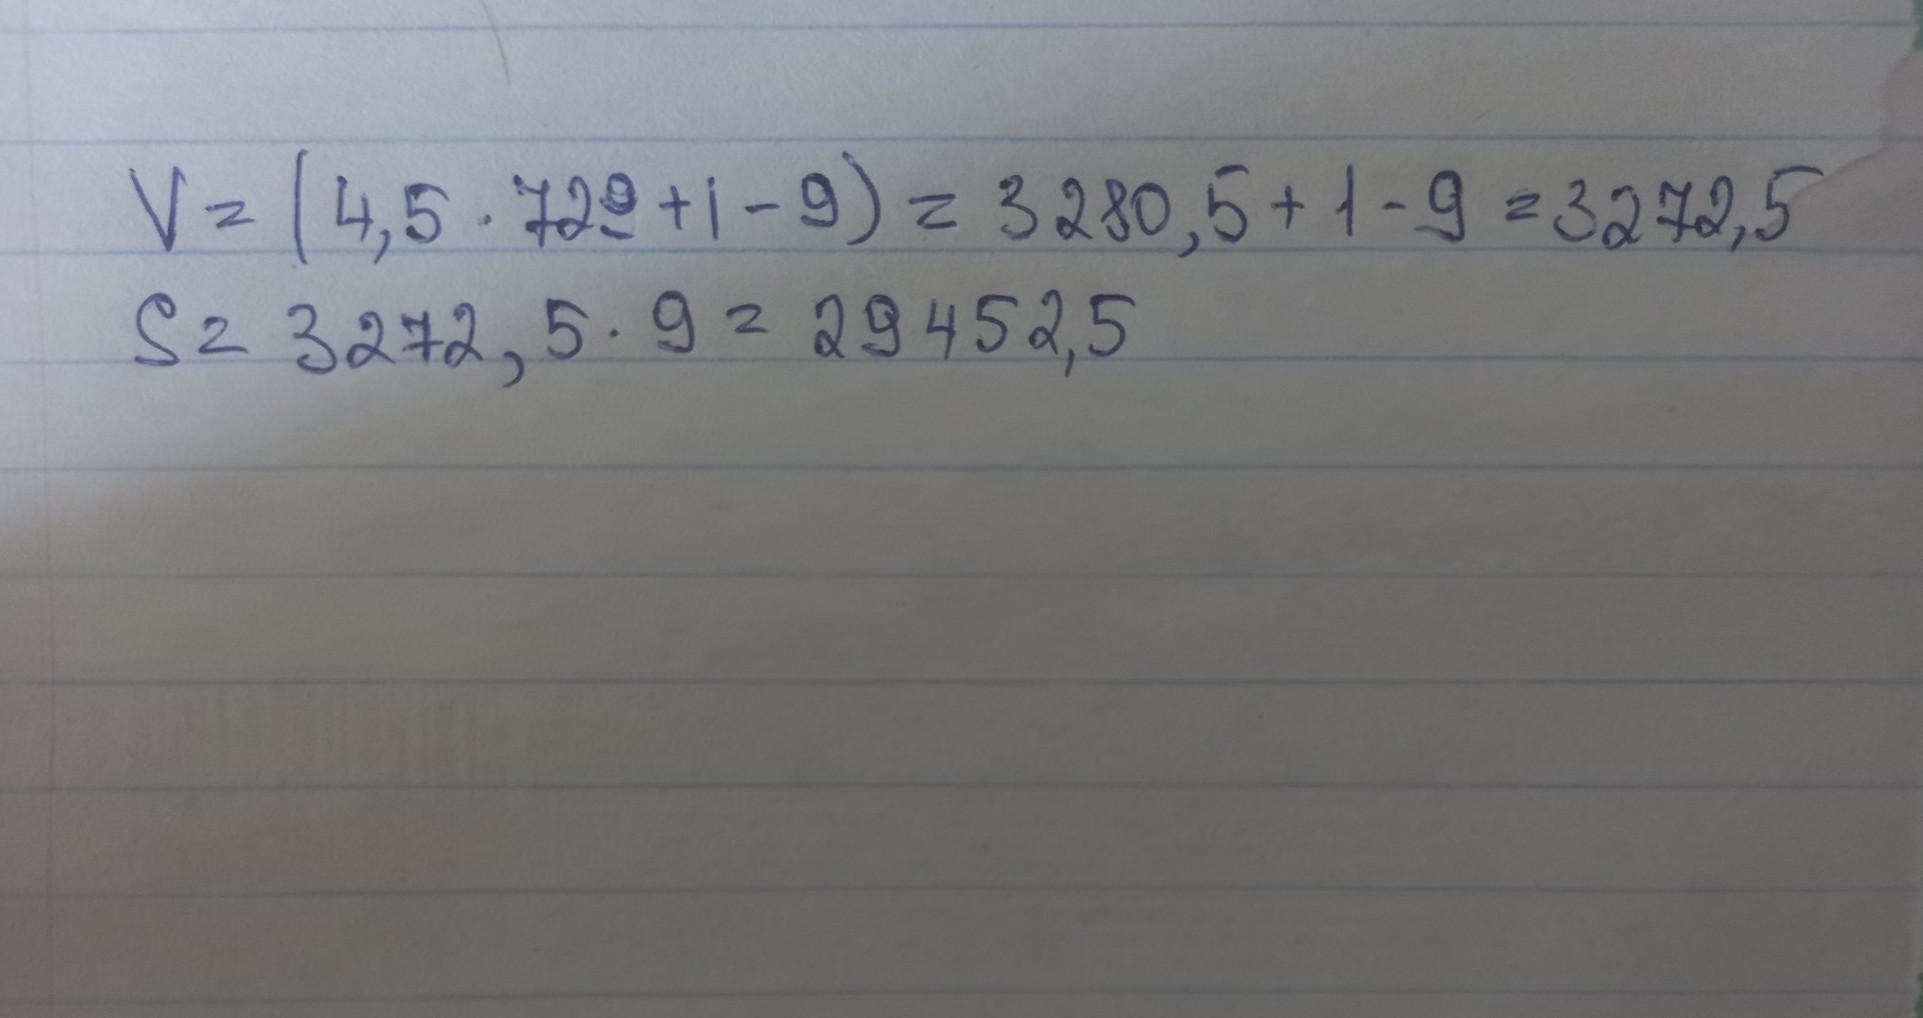 V = (4,5 · 729 + 1 - 9) = 3280,5 + 1 - 9 = 3272,5
S = 3272,5 · 9 = 29452,5